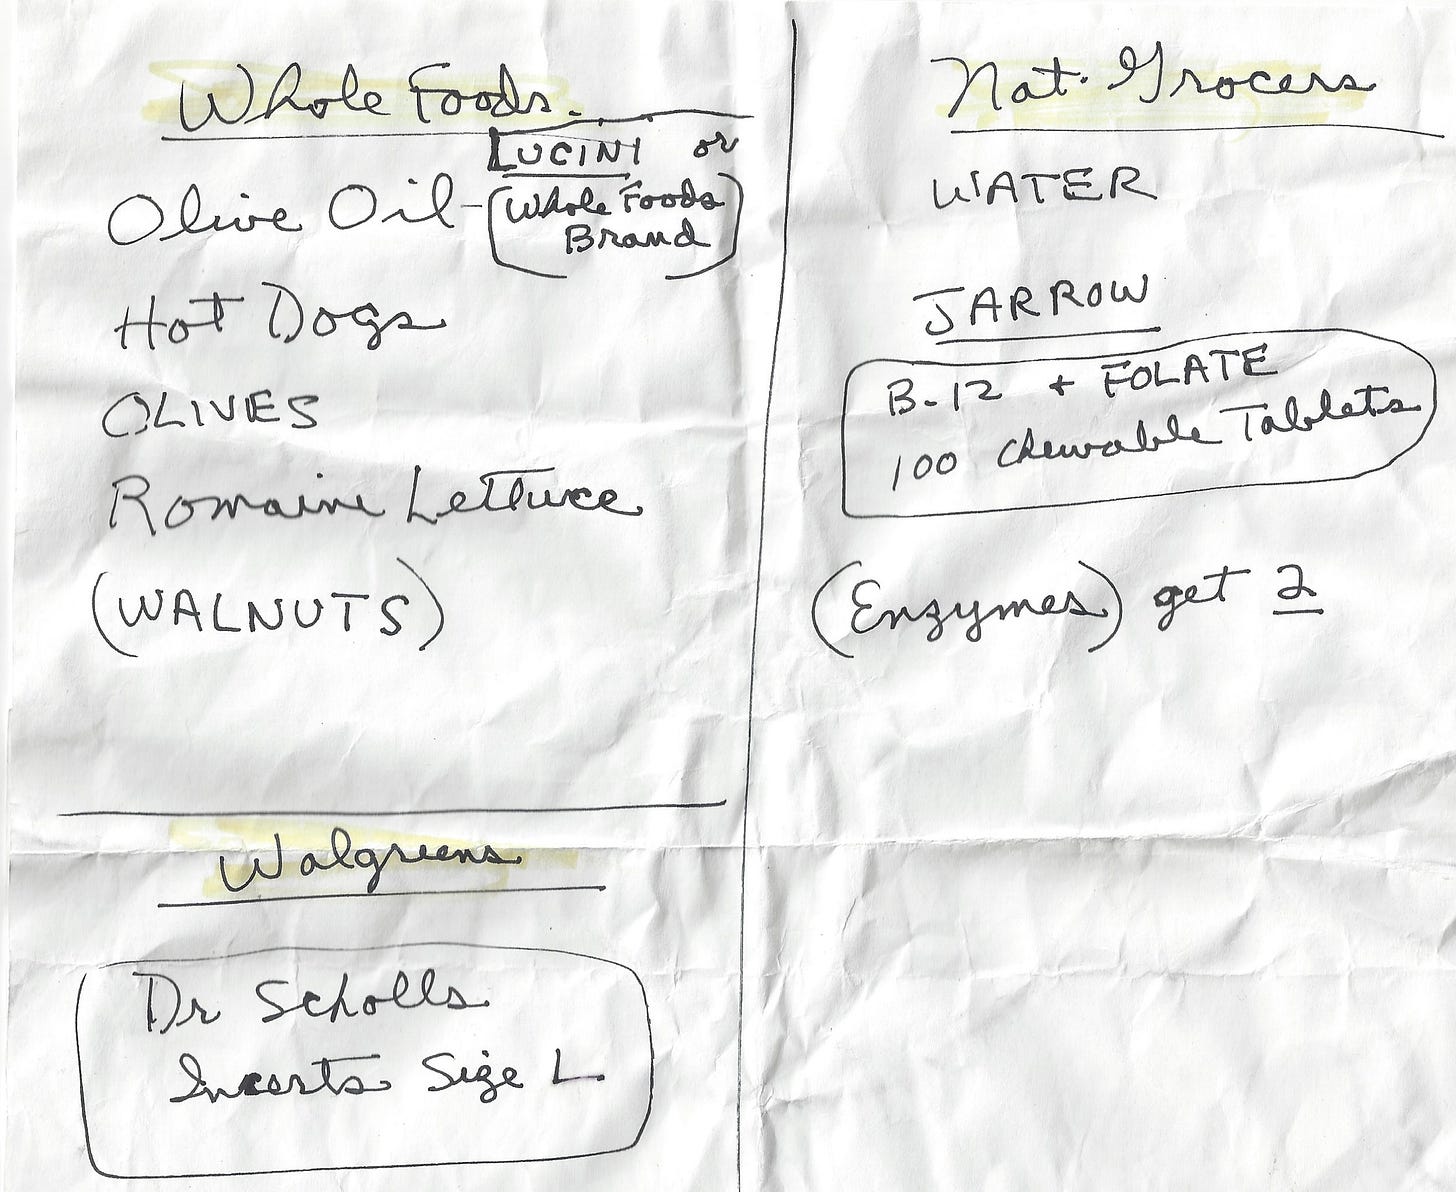 Whole Foods.
LUCINI or
Olive Oil - (Whole Foods
Brand)
Hot Dogs
OLIVES
Romaine Lettuce
(WALNUTS)
Walgreens
Dr Scholls
Inserts Size L
Nat. Grocers
WATER
JARROW
B-12 + FOLATE
100 chewable Tablets
(Enzymes) get 2